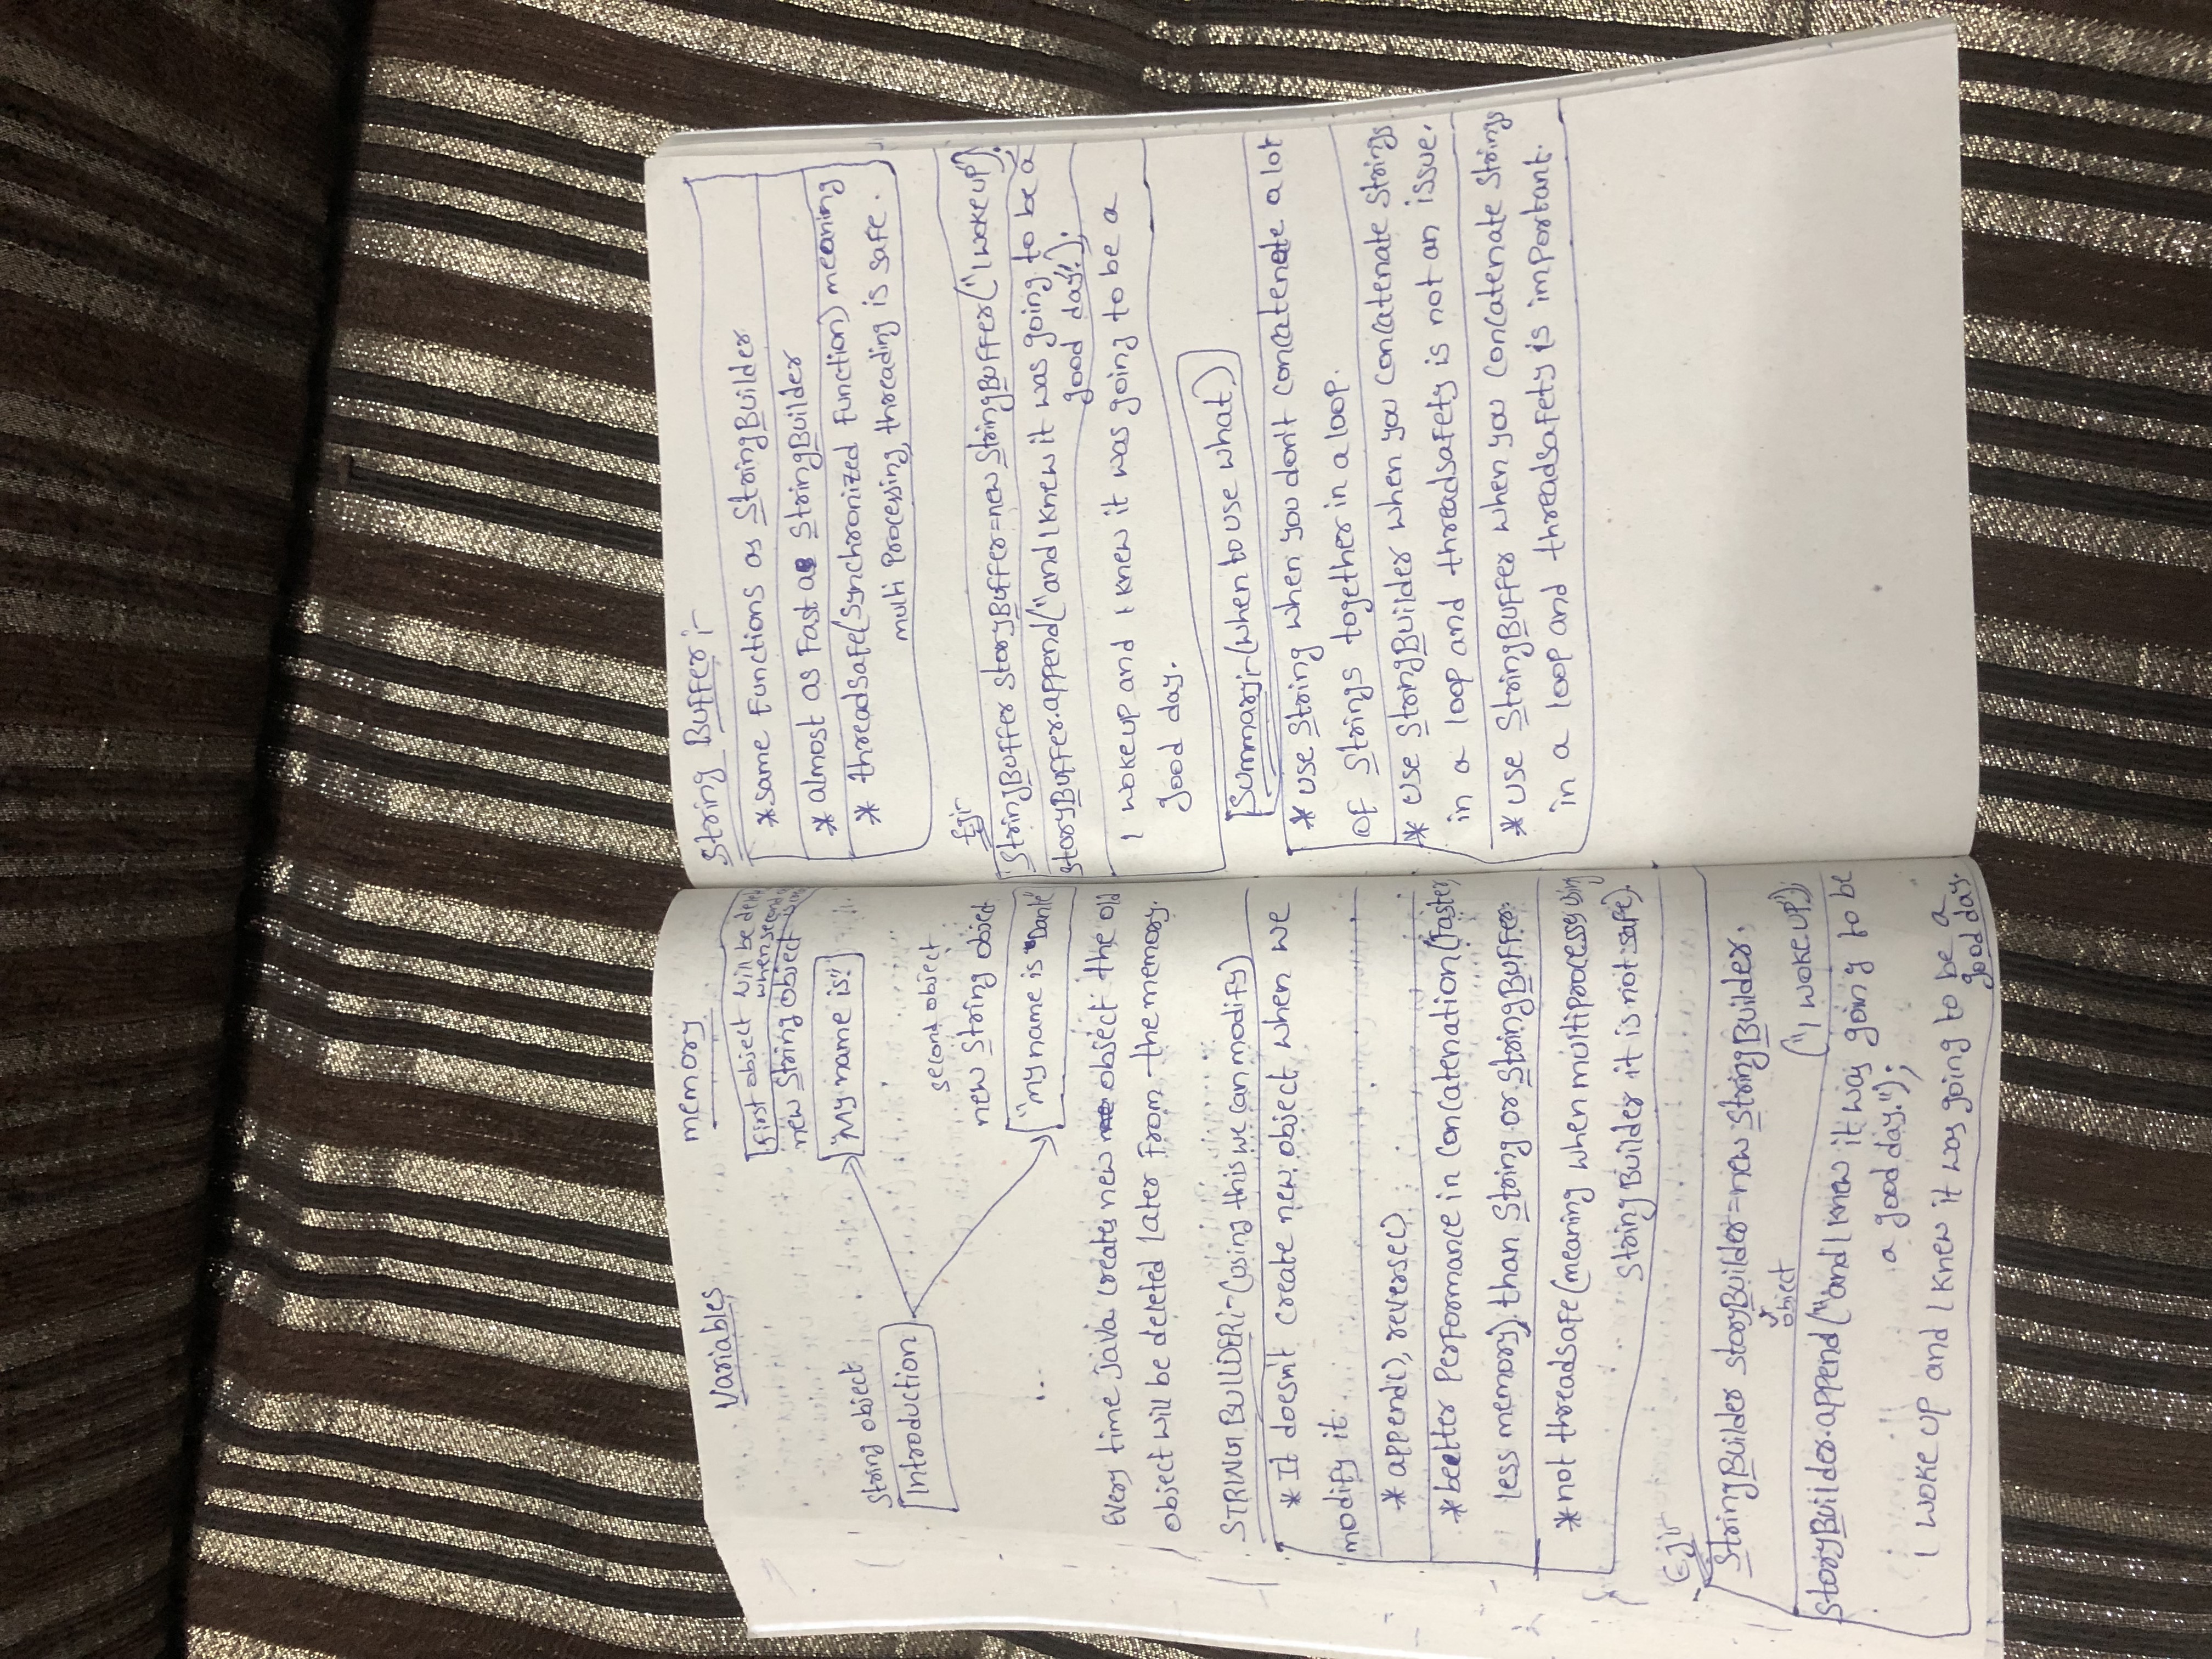 Variables
memory
First object will be
when second
new String object is
"My name is"
String object
Introduction
second object
new String object
"My name is Dante"
Every time java creates new object the old
object will be deleted later from the memory.
STRING BUILDER:-(using this we can modify)
* It doesn't create new object when we
modify it.
* append(), reverse()
* better performance in concatenation (faster,
less memory) than String or StringBuffer.
* not threadsafe (meaning when multiprocesses using
StringBuilder it is not safe).
Eg:-
StringBuilder storyBuilder=new StringBuilder.
object
("I woke up");
storyBuilder.append("and I knew it was going to be
a good day.");
I woke up and I knew it was going to be a
good day.
String Buffer:-
* same Functions as StringBuilder
* almost as Fast as StringBuilder
* threadsafe(synchronized Function) meaning
multi Processing, threading is safe.
Eg:-
StringBuffer storyBuffer=new StringBuffer("I woke up");
storyBuffer.append("and I knew it was going to be a
good day.");
I woke up and I knew it was going to be a
good day.
Summary:-(when to use what)
* use String when you don't concatenate a lot
of Strings together in a loop.
* use StringBuilder when you concatenate Strings
in a loop and threadsafety is not an issue.
* use StringBuffer when you concatenate Strings
in a loop and threadsafety is important.